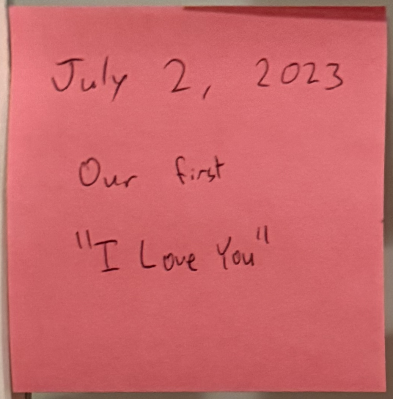 July 2, 2023
Our first
"I Love You"